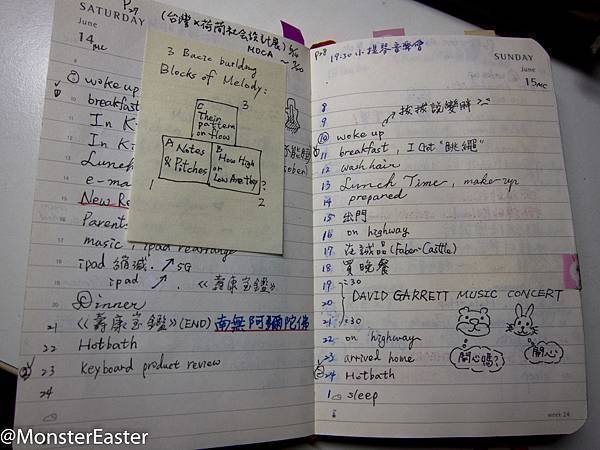 SATURDAY
June
14
(台灣×荷蘭社会設計展)
MOCA
3 Basic building
Blocks of Melody:
C 3
Their
pattern
or flow
A Notes
& Pitches
B How High
or
Low Are they?
1
2
woke up
breakfast
In K
In K
Lunch
e-ma
New Re
Parents
music / ipad rearrange
ipad 縮減. ↗ 5G
ipad ↗. 《壽康宝鑑》
Dinner
21 《壽康宝鑑》(END) 南無阿彌陀佛
22 Hotbath
23 Keyboard product review
24
19:30 小提琴音樂會
SUNDAY
June
15
8
9 ↗拔拔說變胖
10 woke up
11 breakfast, I Got "跳繩"
12 wash hair
13 Lunch Time, make-up
14 prepared
15 出門
16 on highway
17 在誠品(Faber-Castle)
18 買晚餐
19 :30
20 DAVID GARRETT MUSIC CONCERT
21 :30
22 on highway
23 arrived home
開心嗎?
開心
24 Hotbath
1 sleep
week 24
@MonsterEaster